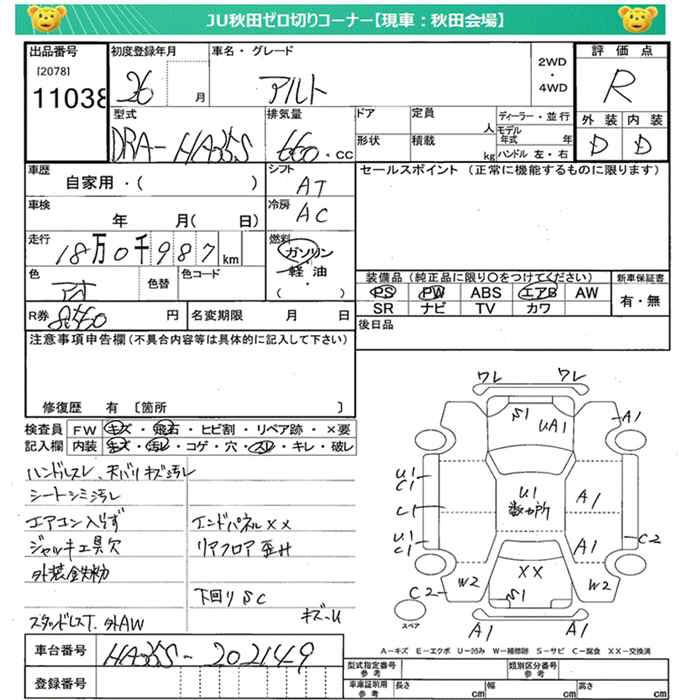 JU秋田ゼロ切りコーナー【現車：秋田会場】
出品番号
[2078]
11038
初度登録年月
26 月
車名・グレード
アルト
2WD
・
4WD
評価点
R
外装 内装
D D
型式
DRA-HA35S
排気量
660.cc
ドア
形状
定員
人
積載
kg
ディーラー・並行
モデル年式 年
ハンドル 左・右
車歴
自家用・( )
シフト
AT
セールスポイント (正常に機能するものに限ります)
車検
年 月( 日)
冷房
AC
走行
18万0千987km
燃料
ガソリン
軽油
・
( )
色
色替
色コード
装備品(純正品に限り○をつけてください)
PS PW ABS エアB AW
SR ナビ TV カワ
新車保証書
有・無
R券
円
名変期限 月 日
後日品
注意事項申告欄(不具合内容等は具体的に記入して下さい)
修復歴 有 [箇所 ]
検査員記入欄
FW キズ・飛石・ヒビ割・リペア跡・×要
内装 キズ・汚レ・コゲ・穴・スレ・キレ・破レ
ハンドルスレ、天バリキズ汚レ
シートシミ汚レ
エアコン入らず
ジャッキ工具欠
外装鉄粉
スタッドレスT.外AW
エンドパネルXX
リアフロア歪ミ
下回りSC
キズ-U
ワレ ワレ
S1
UA1
A1
U1
C1
C1
U1
C1
U1
数ヶ所
A1
A1
C2
W2
C2
XX
S1
W2
A1 A1
スペア
A－キズ E－エクボ U－凹み W－補修跡 S－サビ C－腐食 XX－交換済
車台番号
HA35S-202149
登録番号
型式指定番号
参考
類別区分番号
参考
車庫証明用
参考
長さ cm
幅 cm
高さ cm